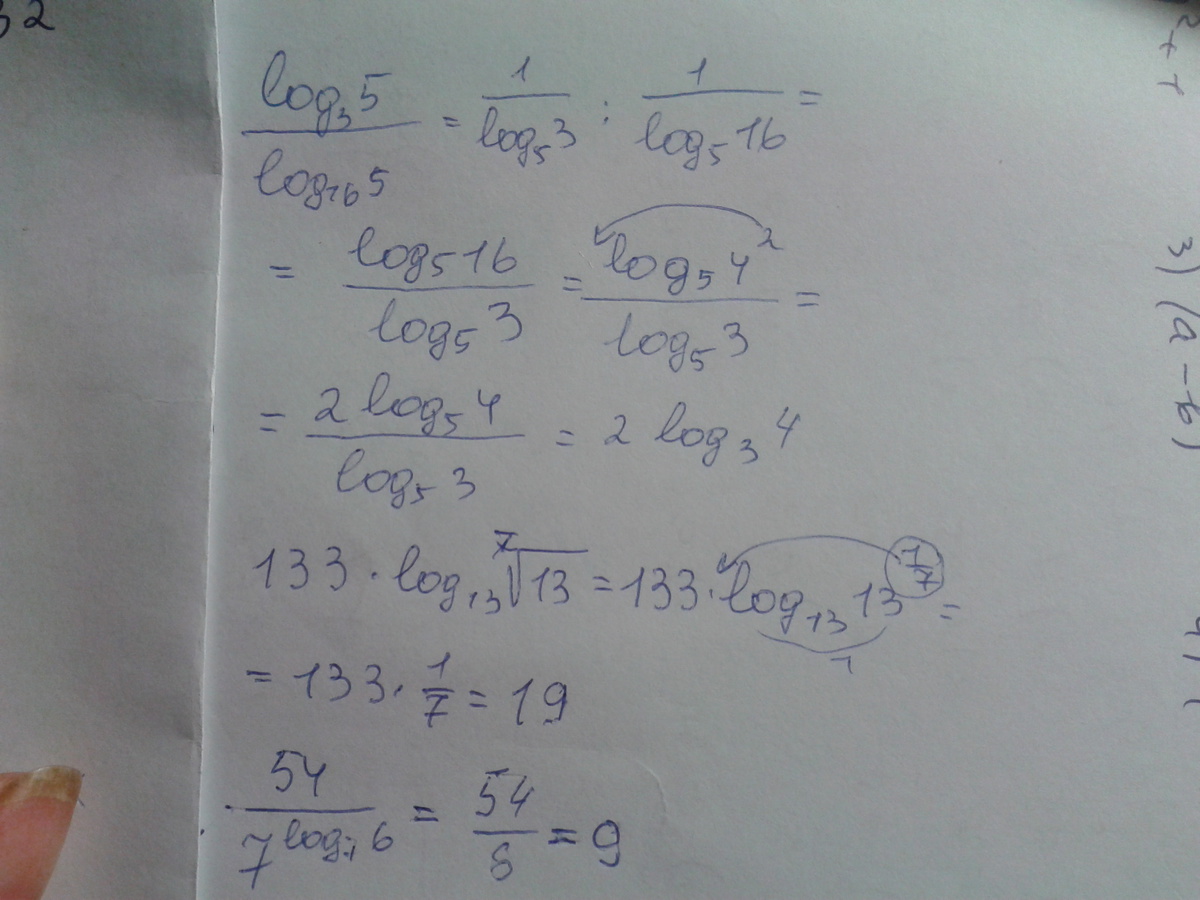 32
log₃5 / log₁₆5 = 1 / log₅3 : 1 / log₅16 =
= log₅16 / log₅3 = log₅4² / log₅3 =
= 2 log₅4 / log₅3 = 2 log₃4
133 · log₁₃ ⁷√13 = 133 · log₁₃13^(1/7) =
1
= 133 · 1/7 = 19
54 / 7^(log₇6) = 54 / 6 = 9
3) (a - b)